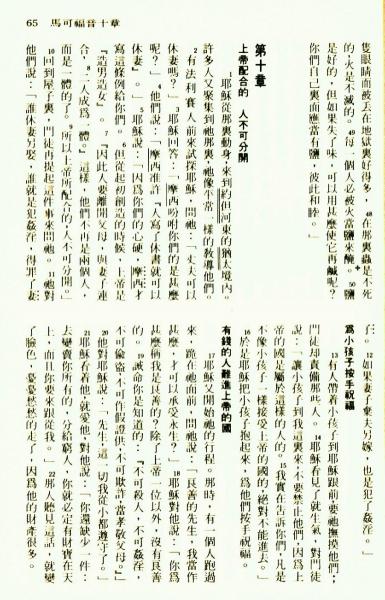 65 馬可福音十章
隻眼睛而被丟在地獄裏好得多,48 在那裏蟲是不死
的,火是不滅的。49 每一個人必被火當鹽來醃。50 鹽
是好的,但如果失了味,可以用甚麼使它再鹹呢?
你們自己裏面應當有鹽,彼此和睦。」
第十章
上帝配合的 人不可分開
1 耶穌從那裏動身,來到約但河東的猶太境內。
許多人又聚集到祂那裏,祂像平常一樣的教導他們。
2 有法利賽人前來試探耶穌,問祂:「丈夫可以
休妻嗎?」3 耶穌回答:「摩西吩咐你們的是甚麼
呢?」4 他們說:「摩西准許『人寫了休書就可以
休妻』。」5 耶穌說:「因爲你們的心硬,摩西才
寫這條例給你們。6 但從起初創造的時候,上帝是
『造男造女』。7 『因此人要離開父母,與妻子連
合,8 二人成爲一體。』這樣,他們不再是兩個人,
而是一體的了。9 所以上帝所配合的,人不可分開。」
10 回到屋子裏,門徒再提起這件事來問祂。11 祂對
他們說:「誰休妻另娶,誰就是犯姦淫,得罪了妻
子。12 如果妻子棄夫另嫁,也是犯了姦淫。」
爲小孩子按手祝福
13 有人帶着小孩子到耶穌跟前要祂撫摸他們;
門徒却責備那些人。14 耶穌看見了就生氣,對門徒
說:「讓小孩子到我這裏來,不要禁止他們,因爲上
帝的國是屬於這樣的人的。15 我實在告訴你們,凡是
不像小孩子一樣接受上帝的國的,絕對不能進去。」
16 於是耶穌把小孩子抱起來,爲他們按手祝福。
有錢的人難進上帝的國
17 耶穌又開始祂的行程。那時,有一個人跑過
來,跪在祂面前,問祂說:「良善的先生,我當作
甚麼,才可以承受永生?」18 耶穌對他說:「你爲
甚麼稱我是良善的?除了上帝一位以外,沒有良善
的。19 誡命你是知道的:『不可殺人,不可姦淫,
不可偷盜,不可作假證供,不可欺詐,當孝敬父母。』」
20 他對耶穌說:「先生,這一切我從小都遵守了。」
21 耶穌看着他,就愛他,對他說:「你還缺少一件:
去變賣你所有的,分給窮人,你就必定有財寶在天
上,而且你要來跟從我。」22 那人聽見這話,就變
了臉色,憂憂愁愁的走了,因爲他的財產很多。